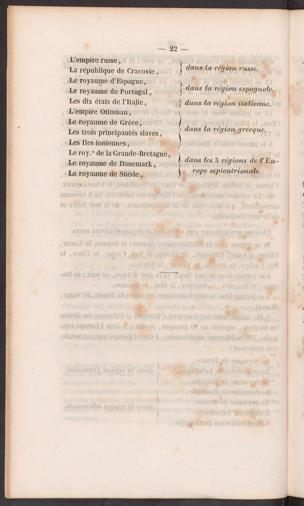 — 22 —
L'empire russe,
La république de Cracovie,
dans la région russe.
Le royaume d'Espagne,
Le royaume de Portugal,
dans la région espagnole.
Les dix états de l'Italie,
dans la région italienne.
L'empire Ottoman,
Le royaume de Grèce,
Les trois principautés slaves,
Les îles ioniennes,
dans la région grecque.
Le roy.e de la Grande-Bretagne,
Le royaume de Danemark,
Le royaume de Suède,
dans les 3 régions de l'Eu-
rope septentrionale.